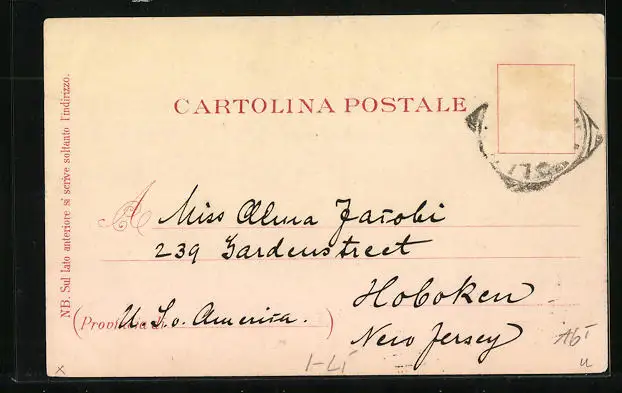 CARTOLINA POSTALE
NB. Sul lato anteriore si scrive soltanto l'indirizzo.
A Miss Alma Jacobi
239 Gardenstreet
Hoboken
(Provincia di U. S. o. America.)
New Jersey